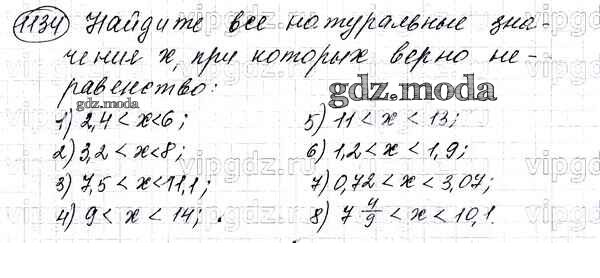 1134 Найдите все натуральные зна-
чения x, при которых верно не-
равенство:
gdz.moda
gdz.moda
1) 2,4 < x < 6;
5) 11 < x < 13;
2) 3,2 < x < 8;
6) 1,2 < x < 1,9;
3) 7,5 < x < 11,1;
7) 0,72 < x < 3,07;
4) 9 < x < 14;
8) 7 4/9 < x < 10,1.
vipgdz.com